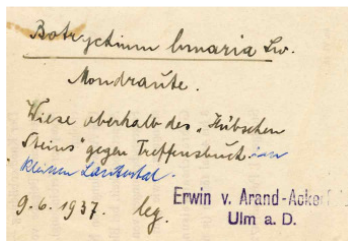 Botrychium lunaria Sw.
Mondraute.
Wiese oberhalb des „Hübschen
Steins" gegen Treffensbuch im
kleinen Lautertal.
9.6.1937. leg. Erwin v. Arand-Acker
Ulm a. D.